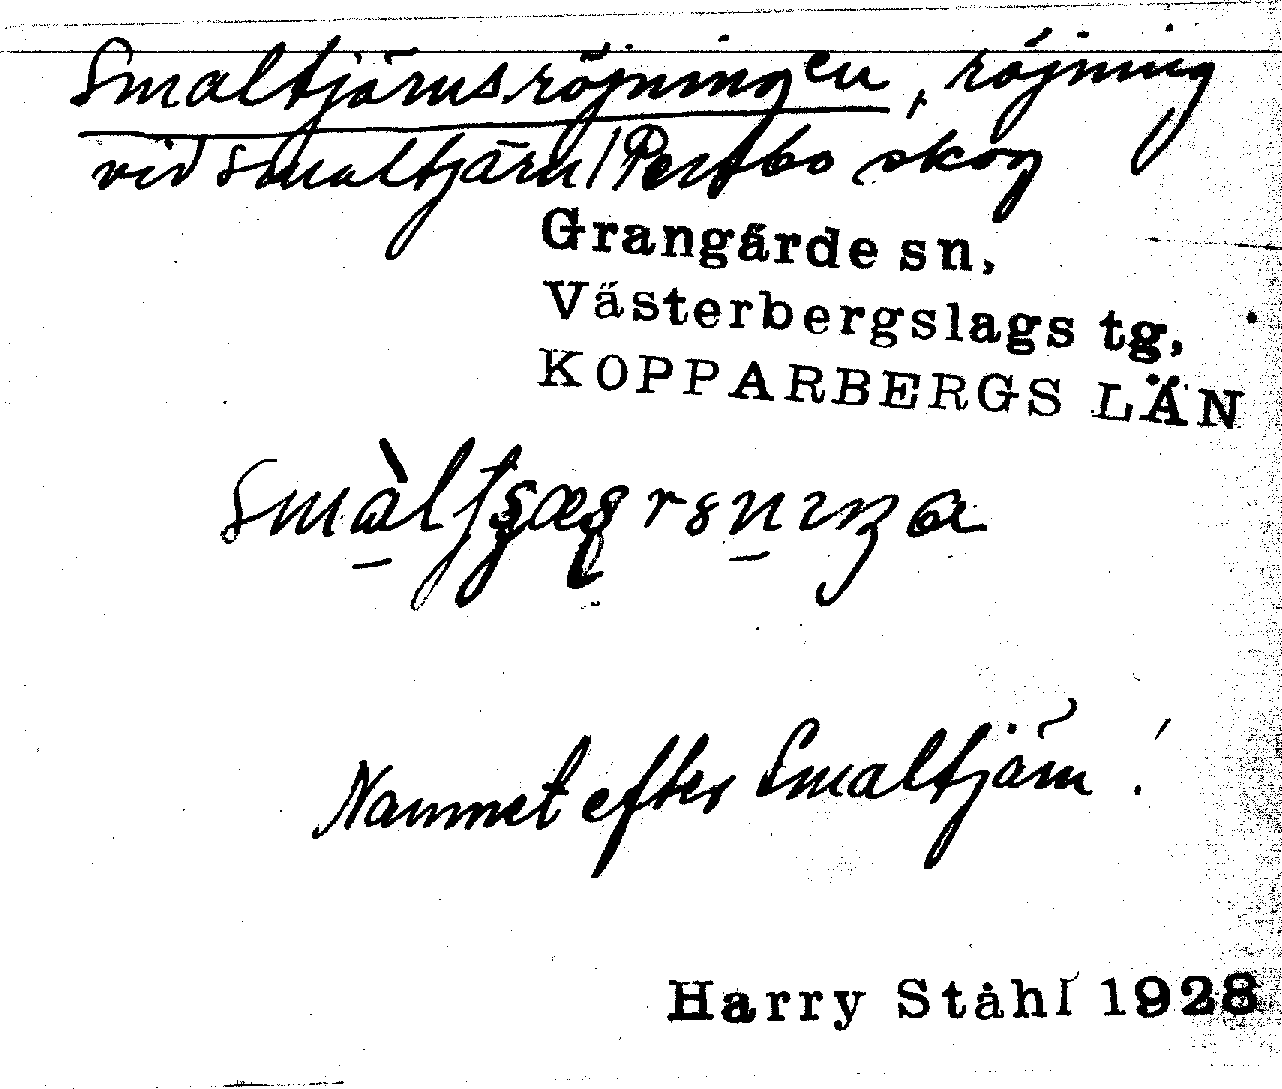 Smaltjärnsröjningen, röjning
vid Smaltjärn/Persbo skog
Grangärde sn,
Västerbergslags tg,
KOPPARBERGS LÄN
Namnet efter Smaltjärn!
Harry Ståhl 1928